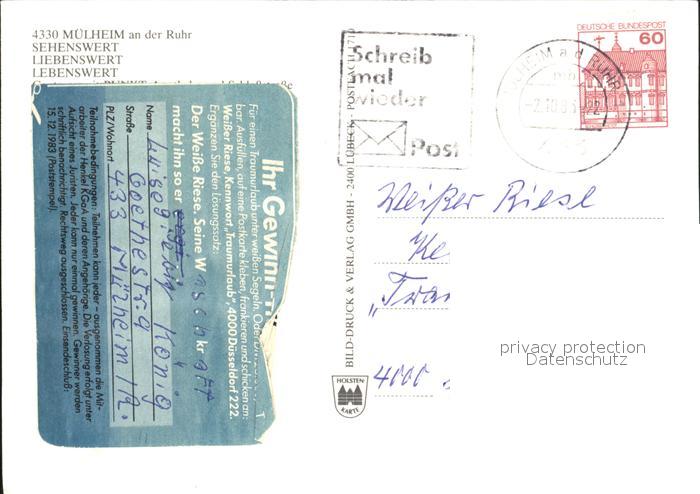 4330 MÜLHEIM an der Ruhr
SEHENSWERT
LIEBENSWERT
LEBENSWERT
Ihr Gewinn-
Für einen Traumurlaub unter weißen Segeln. Oder
bar. Ausfüllen, auf eine Postkarte kleben, frankieren und schicken an:
Weißer Riese, Kennwort „Traumurlaub", 4000 Düsseldorf 222.
Ergänzen Sie den Lösungssatz:
Der Weiße Riese. Seine W aschkr aft
macht ihn so er
Name Luisegrete König
Straße Goethestr. 9
PLZ/Wohnort 433 Mülheim/R.
Teilnahmebedingungen: Teilnehmen kann jeder - ausgenommen die Mit-
arbeiter der Henkel KGaA und deren Angehörige. Die Verlosung erfolgt unter
Aufsicht eines Juristen. Jeder kann nur einmal gewinnen. Gewinner werden
schriftlich benachrichtigt. Rechtsweg ausgeschlossen. Einsendeschluß:
15.12.1983 (Poststempel).
BILD DRUCK & VERLAG GMBH - 2400 LÜBECK - POSTFACH
HOLSTEN
KARTE
Schreib
mal
wieder
Post
DEUTSCHE BUNDESPOST
60
MÜLHEIM a d RUHR
433
Weißer Riese
Ke
„Trau
4000
privacy protection
Datenschutz